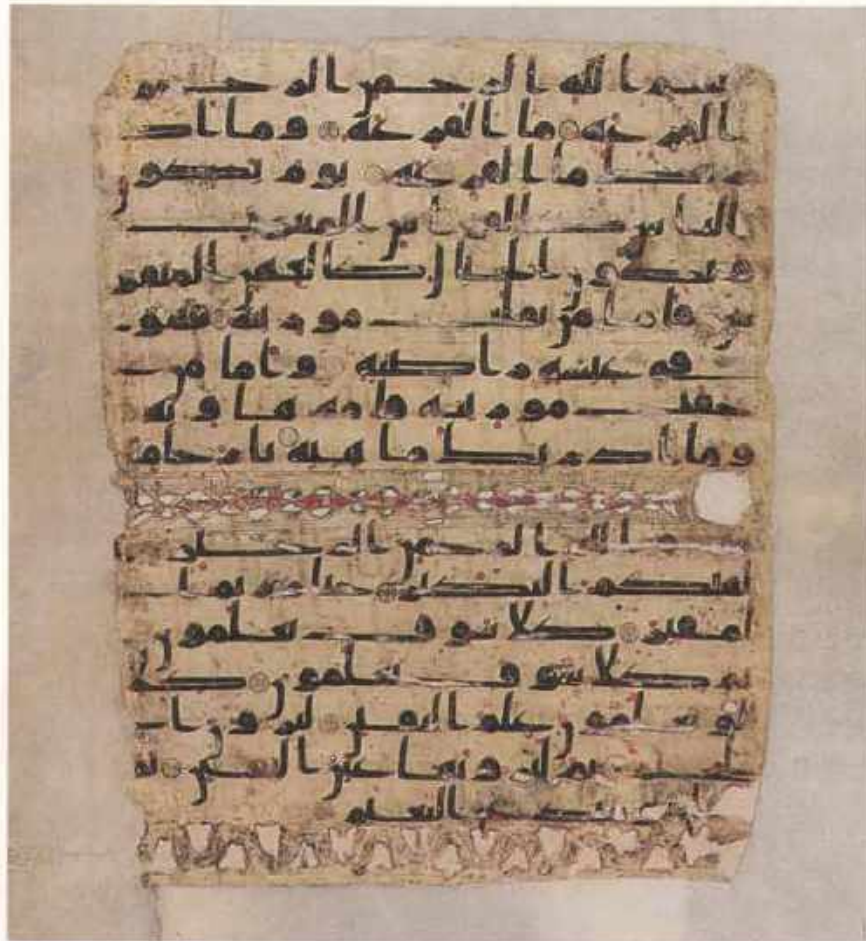 بسم الله الرحمن الرحيم
القرعة ما القرعة وما اد
ريك ما القرعة يوم يكون
الناس كالفراش المبثوث
وتكون الجبال كالعهن المنفو
ش فاما من ثقلت موزينه فهو
في عيشة راضية واما من
خفت موزينه فامه هاوية
وما ادريك ما هيه نار حامية
بسم الله الرحمن الرحيم
الهيكم التكثر حتى زرتم ا
لمقبر كلا سوف تعلمون
ثم كلا سوف تعلمون كلا
لو تعلمون علم اليقين لترون ا
لجحيم ثم لترونها عين اليقين ثم
عن النعيم